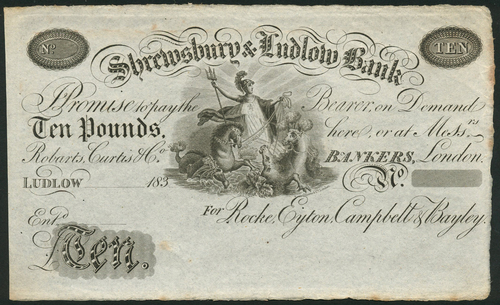 No. TEN
Shrewsbury & Ludlow Bank
I Promise to pay the Bearer, on Demand
Ten Pounds, here, or at Messrs.
Robarts, Curtis & Co. BANKERS, London.
LUDLOW 183 No.
For Rocke, Eyton, Campbell & Bayley.
Entd.
£Ten.